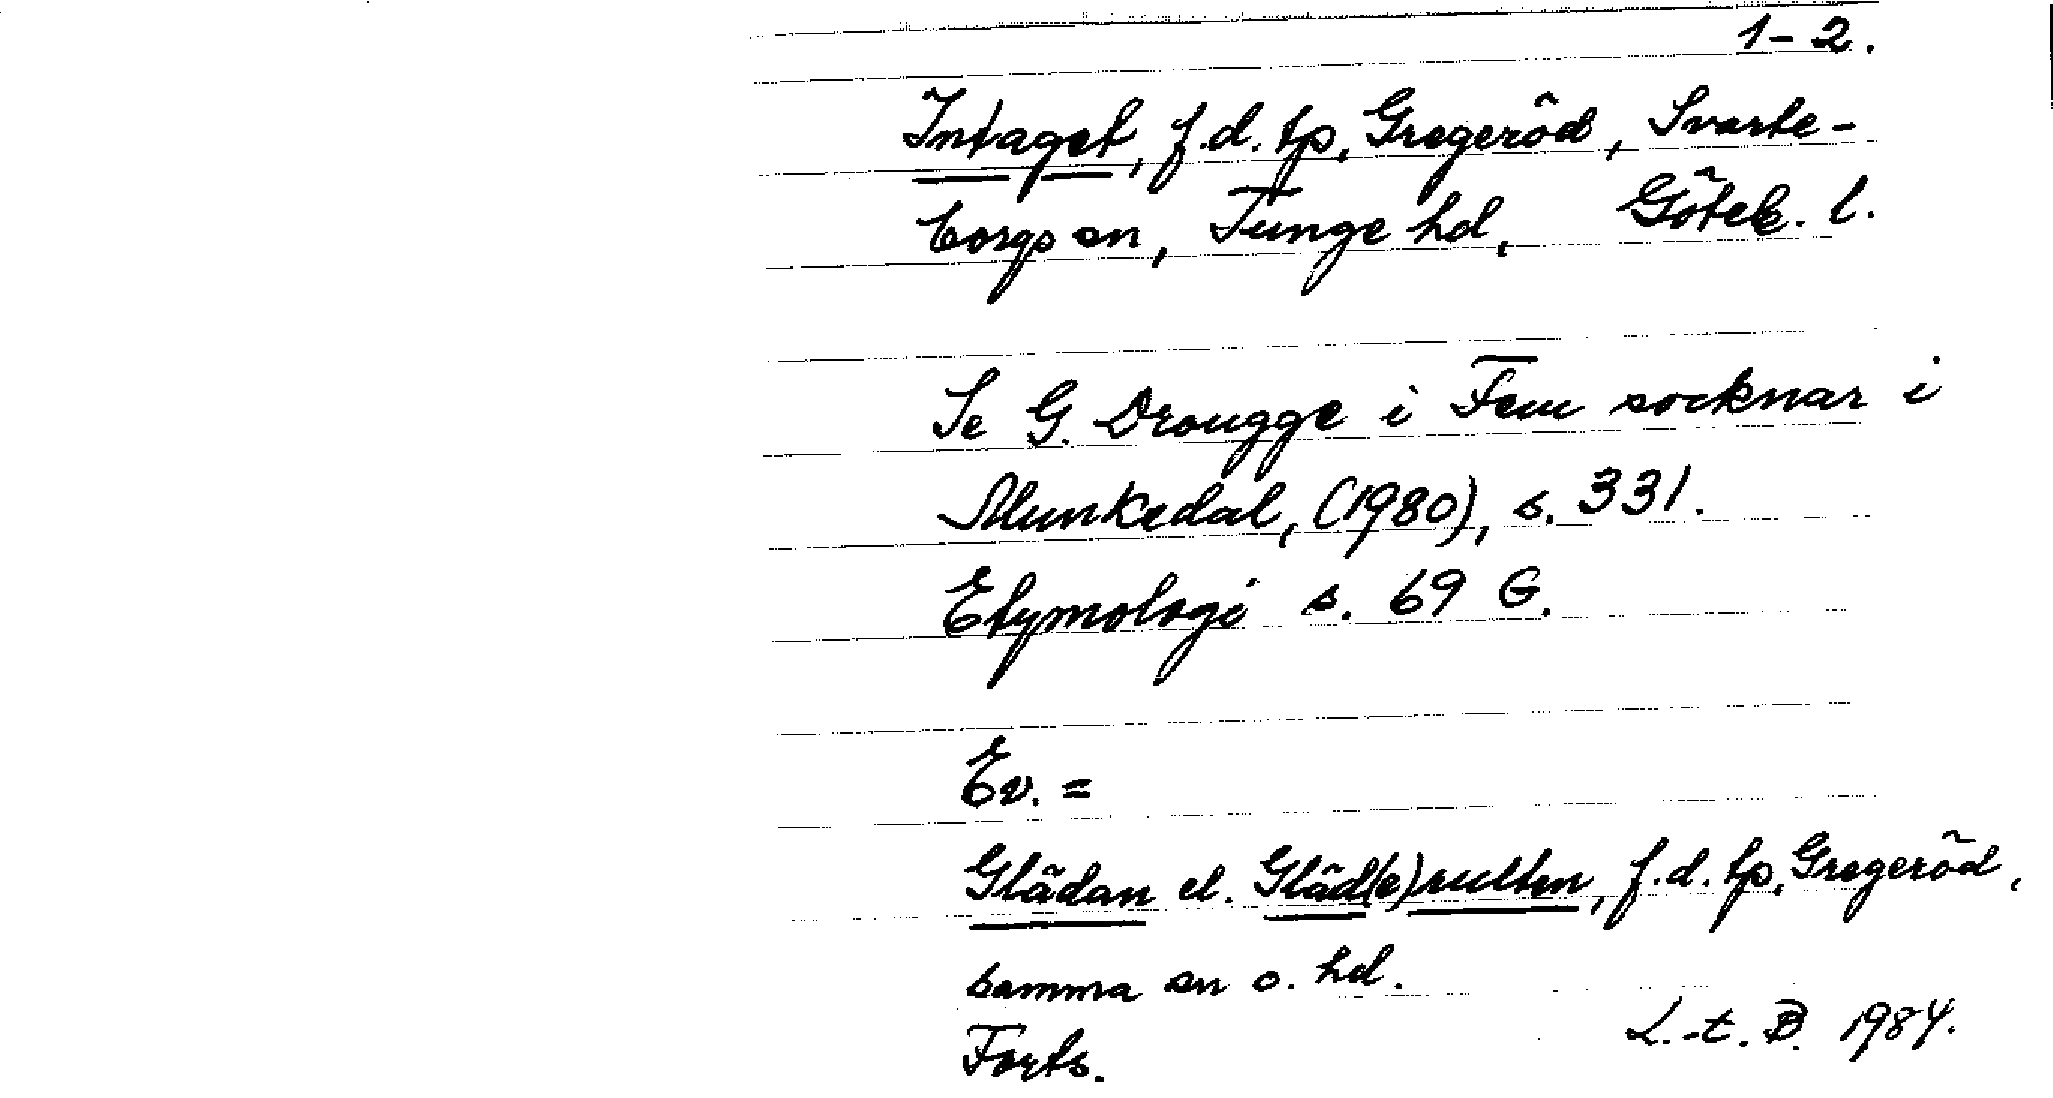 1-2.
Intaget, f.d. tp, Gregeröd, Svarte-
borgs sn, Tunge hd, Göteb. l.
Se G. Drougge i Fem socknar i
Munkedal, (1980), s. 331.
Etymologi s. 69 G.
Ev. =
Glädan el. Gläd(e)rulten, f.d. tp, Gregeröd,
samma sn o. hd.
Forts. L.-t. B. 1984.